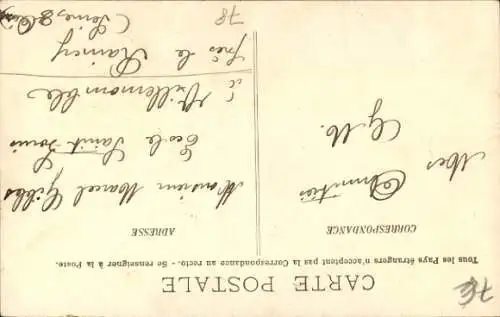 CARTE POSTALE
Tous les Pays étrangers n'acceptent pas la Correspondance au recto. - Se renseigner à la Poste.
CORRESPONDANCE
ADRESSE
Mes
Amitiés
G. M.
Monsieur Marcel Gilles
Ecole Saint-Louis
à Villemomble
près le Raincy
(Seine, &
78
7€